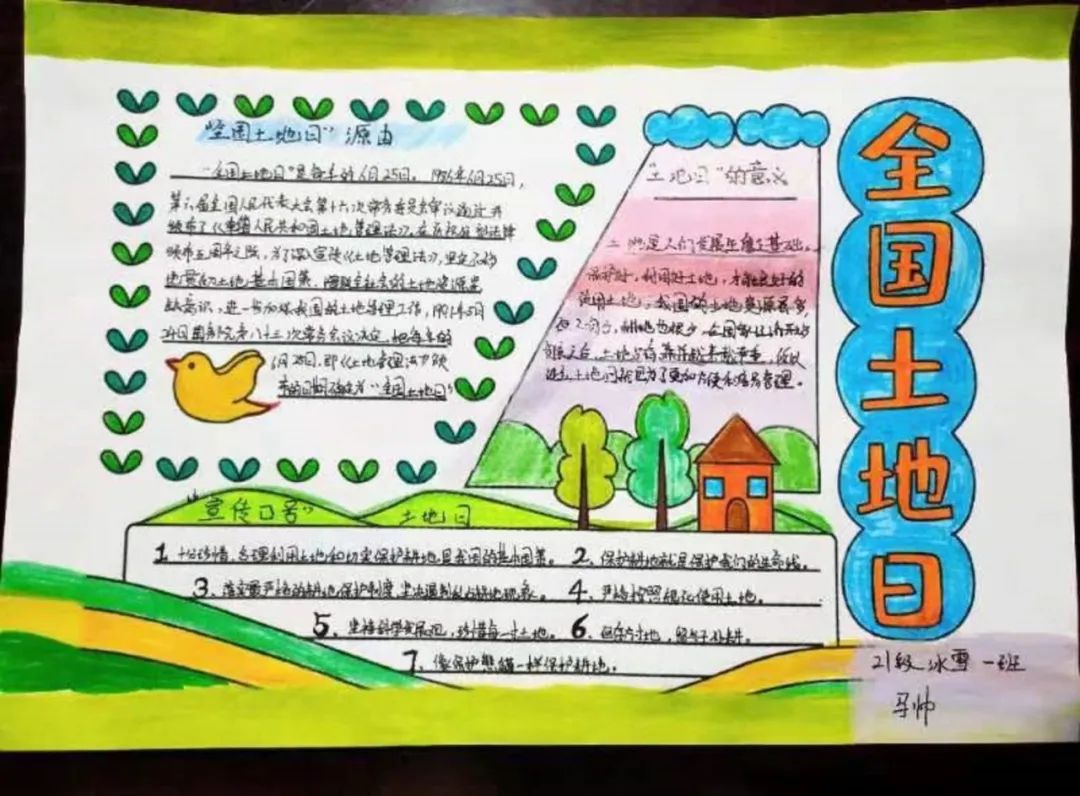 全国土地日
"全国土地日"源由
"全国土地日"是每年的6月25日。1986年6月25日,
第六届全国人民代表大会第十六次常务委员会审议通过并
颁布了《中华人民共和国土地管理法》,
颁布五周年之际,为了深入宣传《土地管理法》,
地贯彻土地基本国策,
意识,进一步加强我国的土地管理工作,1991年5月
24日国务院第八十三次常务会议决定,把每年的
6月25日,即《土地管理法》颁
布的日期确定为"全国土地日"
"土地日"的意义
土地是人们发展生产之基础。
保护好,利用好土地,才能更好的
使用土地,我国的土地资源甚多,
但人均少,耕地也很少,在国家
土地
土地管理。
"宣传口号"
土地日
1 十分珍惜、合理利用土地和切实保护耕地是我国的基本国策。 2、保护耕地就是保护我们的生命线。
3、落实最严格的耕地保护制度,坚决遏制乱占耕地现象。 4、严格按照规划使用土地。
5、坚持科学发展观,珍惜每一寸土地。 6、但存方寸地,留与子孙耕。
7、像保护熊猫一样保护耕地。
21级冰雪一班
马帅